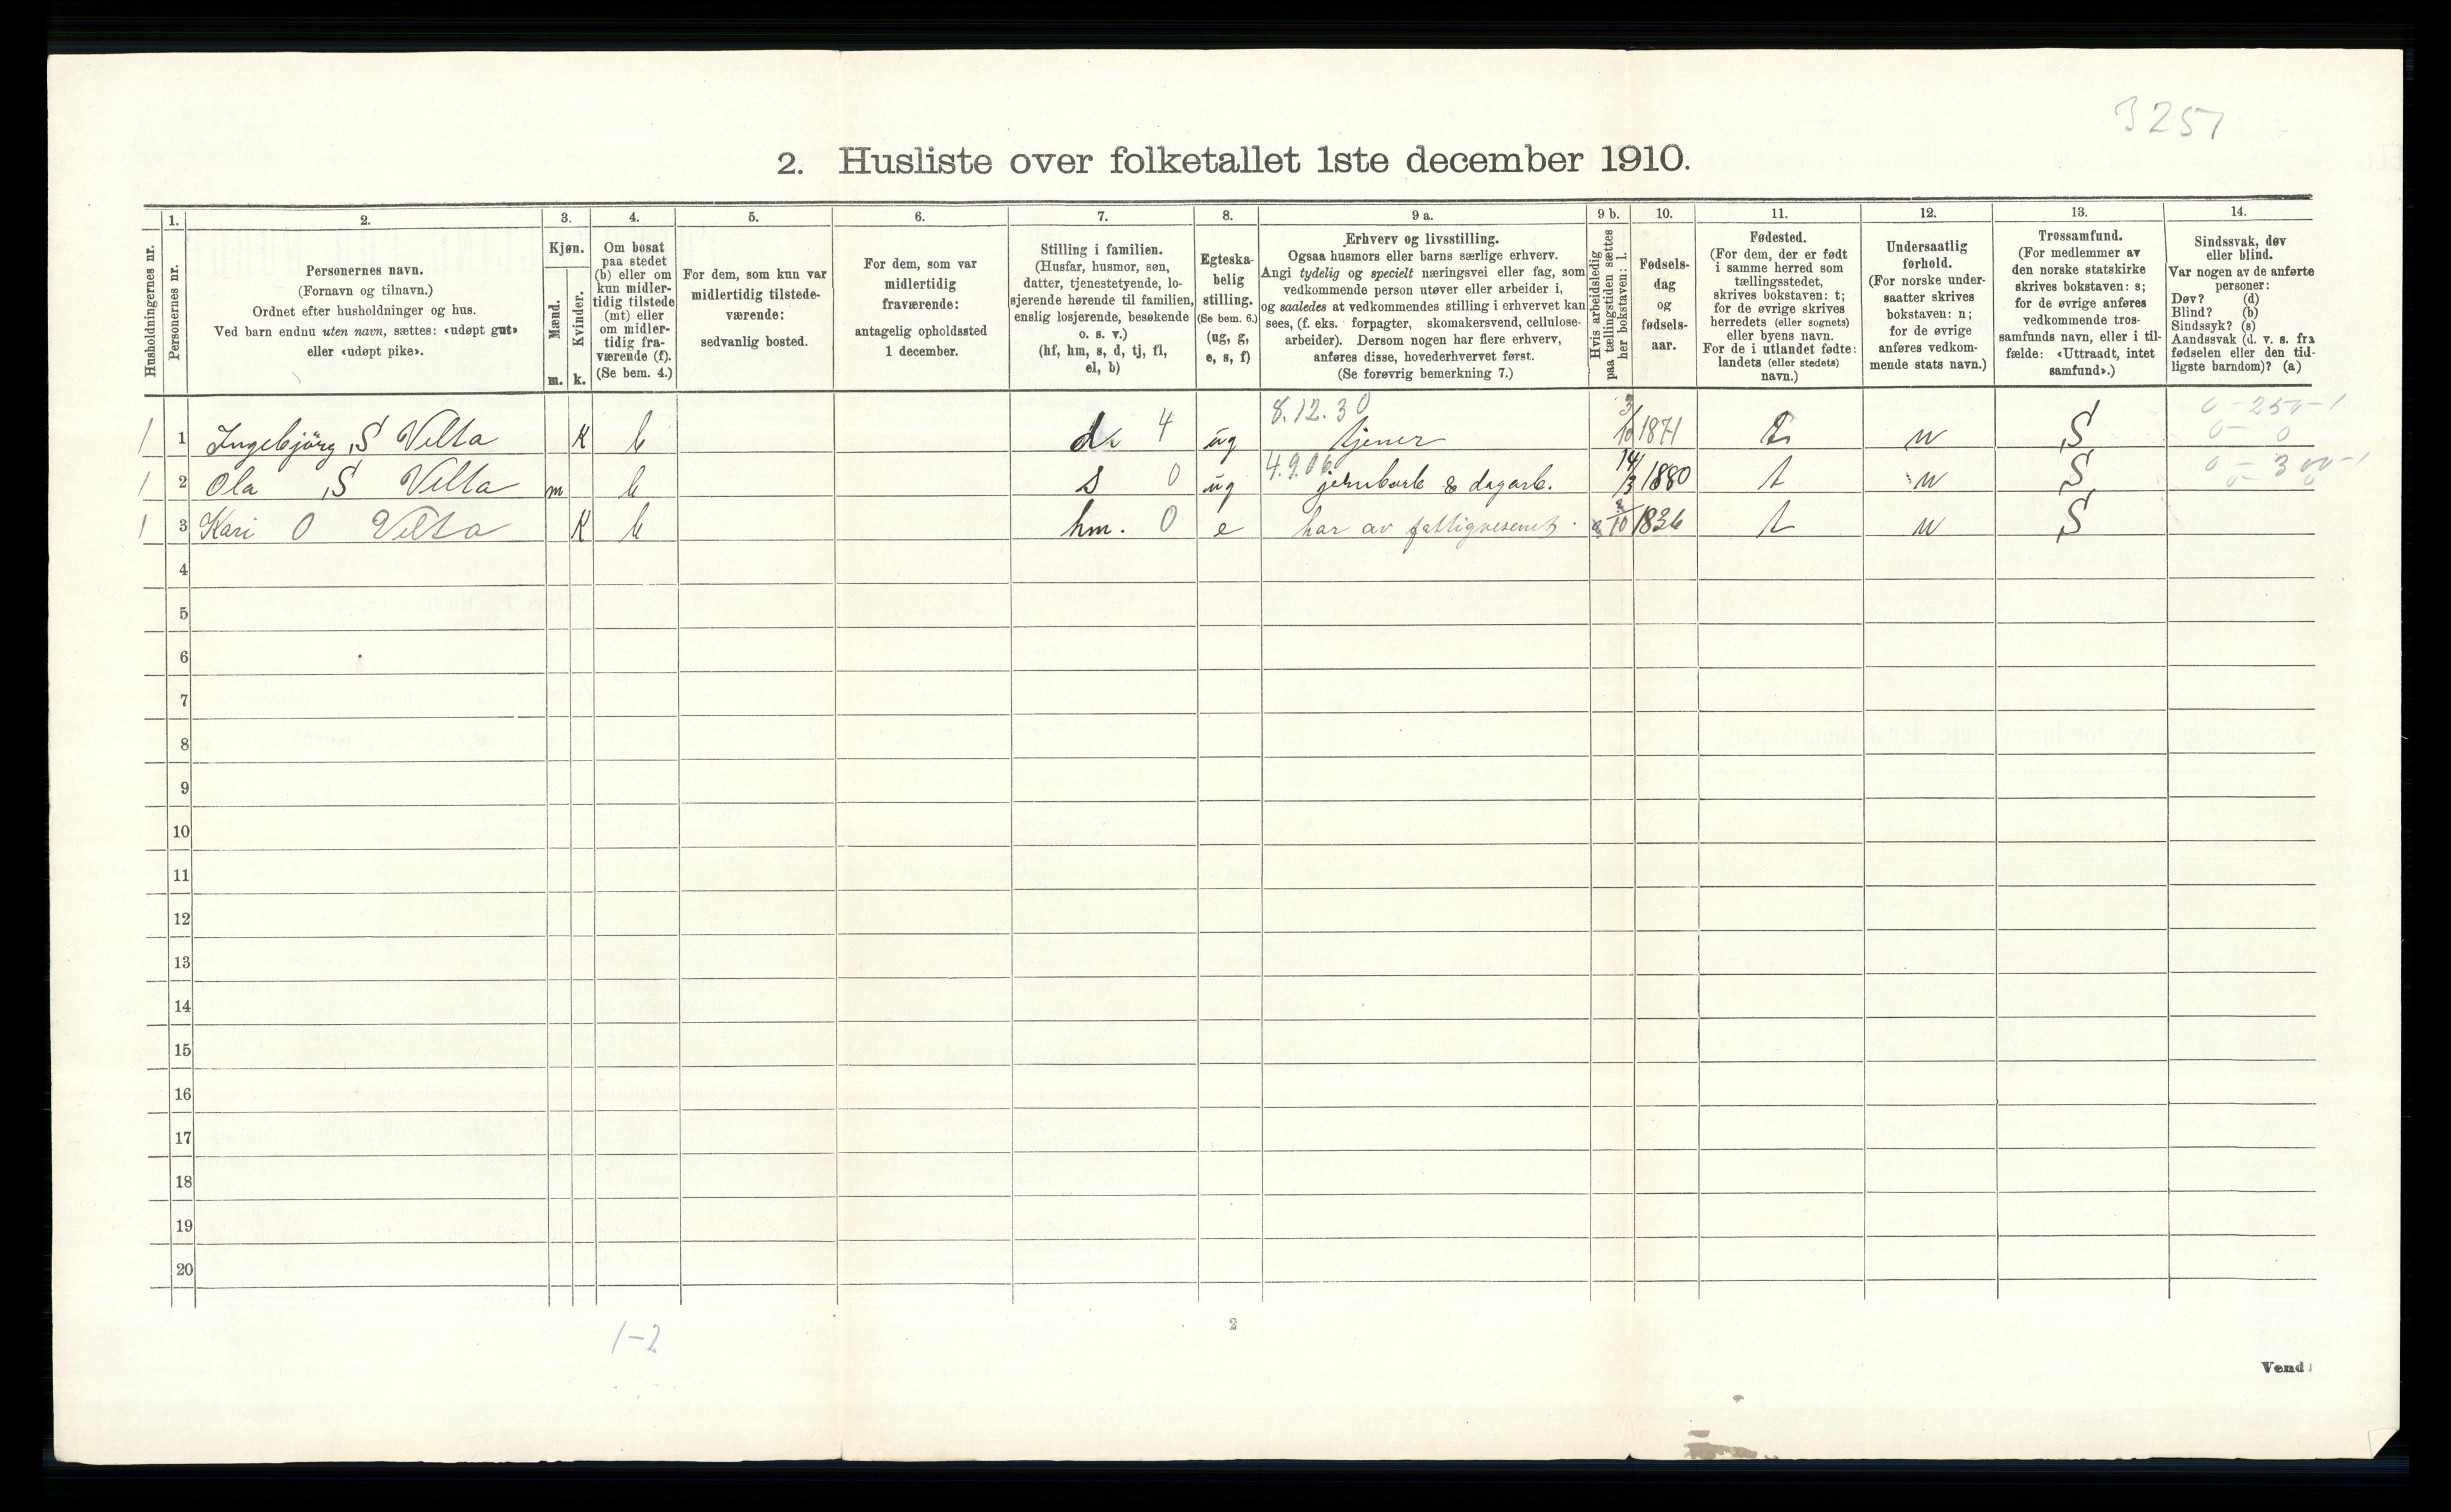 3257
2. Husliste over folketallet 1ste december 1910.
Husholdningernes nr.
1.
Personernes nr.
2.
Personernes navn.
(Fornavn og tilnavn.)
Ordnet efter husholdninger og hus.
Ved barn endnu uten navn, sættes: «udøpt gut»
eller «udøpt pike».
3.
Kjøn.
Mænd.
m.
Kvinder.
k.
4.
Om bosat
paa stedet
(b) eller om
kun midler-
tidig tilstede
(mt) eller
om midler-
tidig fra-
værende (f).
(Se bem. 4.)
5.
For dem, som kun var
midlertidig tilstede-
værende:
sedvanlig bosted.
6.
For dem, som var
midlertidig
fraværende:
antagelig opholdssted
1 december.
7.
Stilling i familien.
(Husfar, husmor, søn,
datter, tjenestetyende, lo-
sjerende hørende til familien,
enslig losjerende, besøkende
o. s. v.)
(hf, hm, s, d, tj, fl,
el, b)
8.
Egteska-
belig
stilling.
(Se bem. 6.)
(ug, g,
e, s, f)
9 a.
Erhverv og livsstilling.
Ogsaa husmors eller barns særlige erhverv.
Angi tydelig og specielt næringsvei eller fag, som
vedkommende person utøver eller arbeider i,
og saaledes at vedkommendes stilling i erhvervet kan
sees, (f. eks. forpagter, skomakersvend, cellulose-
arbeider). Dersom nogen har flere erhverv,
anføres disse, hovederhvervet først.
(Se forøvrig bemerkning 7.)
9 b.
Hvis arbeidsledig
paa tællingstiden sættes
her bokstaven: l.
10.
Fødsels-
dag
og
fødsels-
aar.
11.
Fødested.
(For dem, der er født
i samme herred som
tællingsstedet,
skrives bokstaven: t;
for de øvrige skrives
herredets (eller sognets)
eller byens navn.
For de i utlandet fødte:
landets (eller stedets)
navn.)
12.
Undersaatlig
forhold.
(For norske under-
saatter skrives
bokstaven: n;
for de øvrige
anføres vedkom-
mende stats navn.)
13.
Trossamfund.
(For medlemmer av
den norske statskirke
skrives bokstaven: s;
for de øvrige anføres
vedkommende tros-
samfunds navn, eller i til-
fælde: «Uttraadt, intet
samfund».)
14.
Sindssvak, døv
eller blind.
Var nogen av de anførte
personer:
Døv? (d)
Blind? (b)
Sindssyk? (s)
Aandssvak (d. v. s. fra
fødselen eller den tid-
ligste barndom)? (a)
8.12.30 0-250-1
1 1 Ingebjörg S Villa K b d. 4 ug tjener 3/10 1871 t n S 0- 0
4.9.06 0-300-1
1 2 Ola S Villa m b s 0 ug jernbarb & dagarb. 14/3 1880 t n S 0- 0
1 3 Kari O Villa K b hm. 0 e har av fattigvesenet 10 1836 t n S
4
5
6
7
8
9
10
11
12
13
14
15
16
17
18
19
20
1-2
2
Vend!